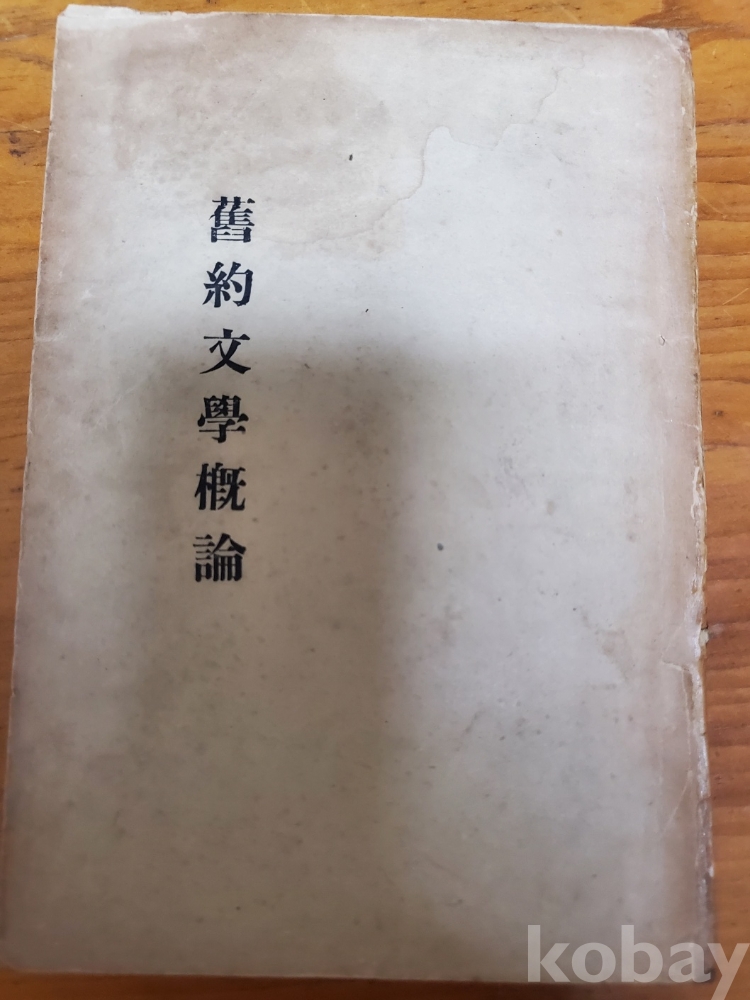 舊約文學槪論
kobay